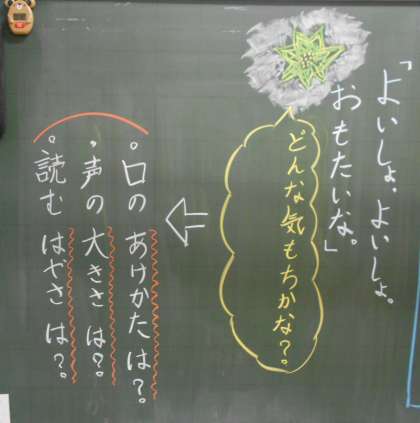 「よいしょ、よいしょ。
おもたいな。」
どんな気もちかな？
。口の あけかたは？
・声の 大きさ は？
。読む はやさ は？